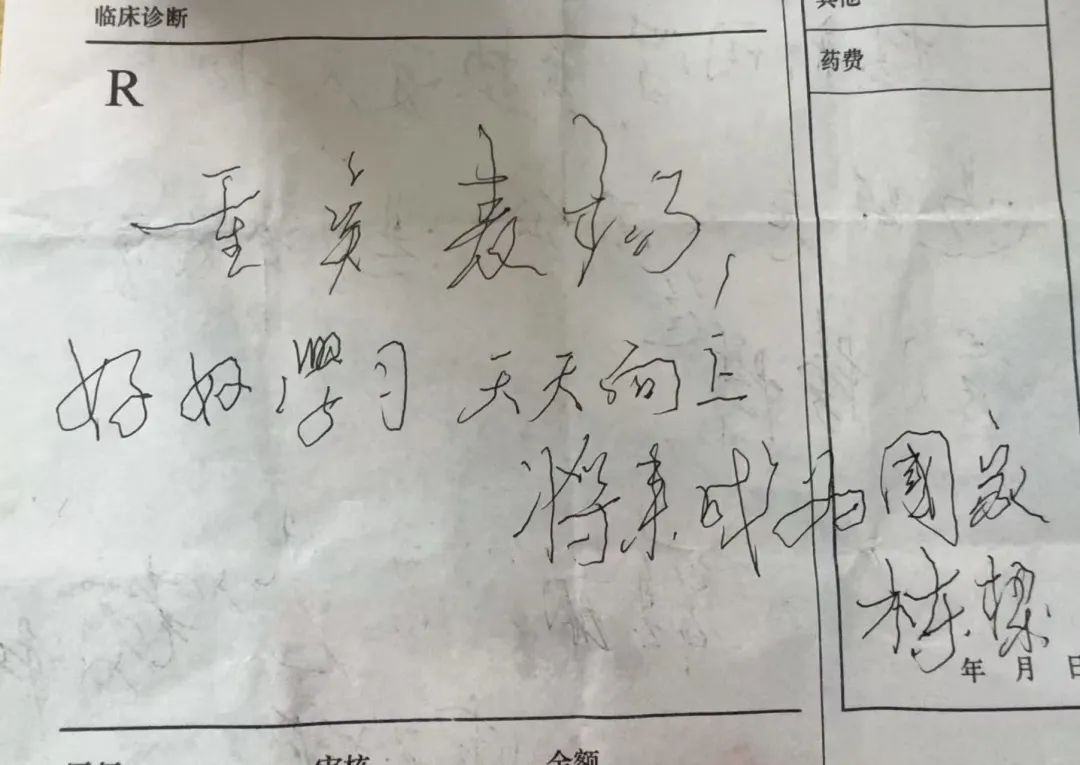 临床诊断
其他
药费
R
重奖表扬，
好好学习 天天向上
将来成为國家
栋樑
年 月 日
审核
金额